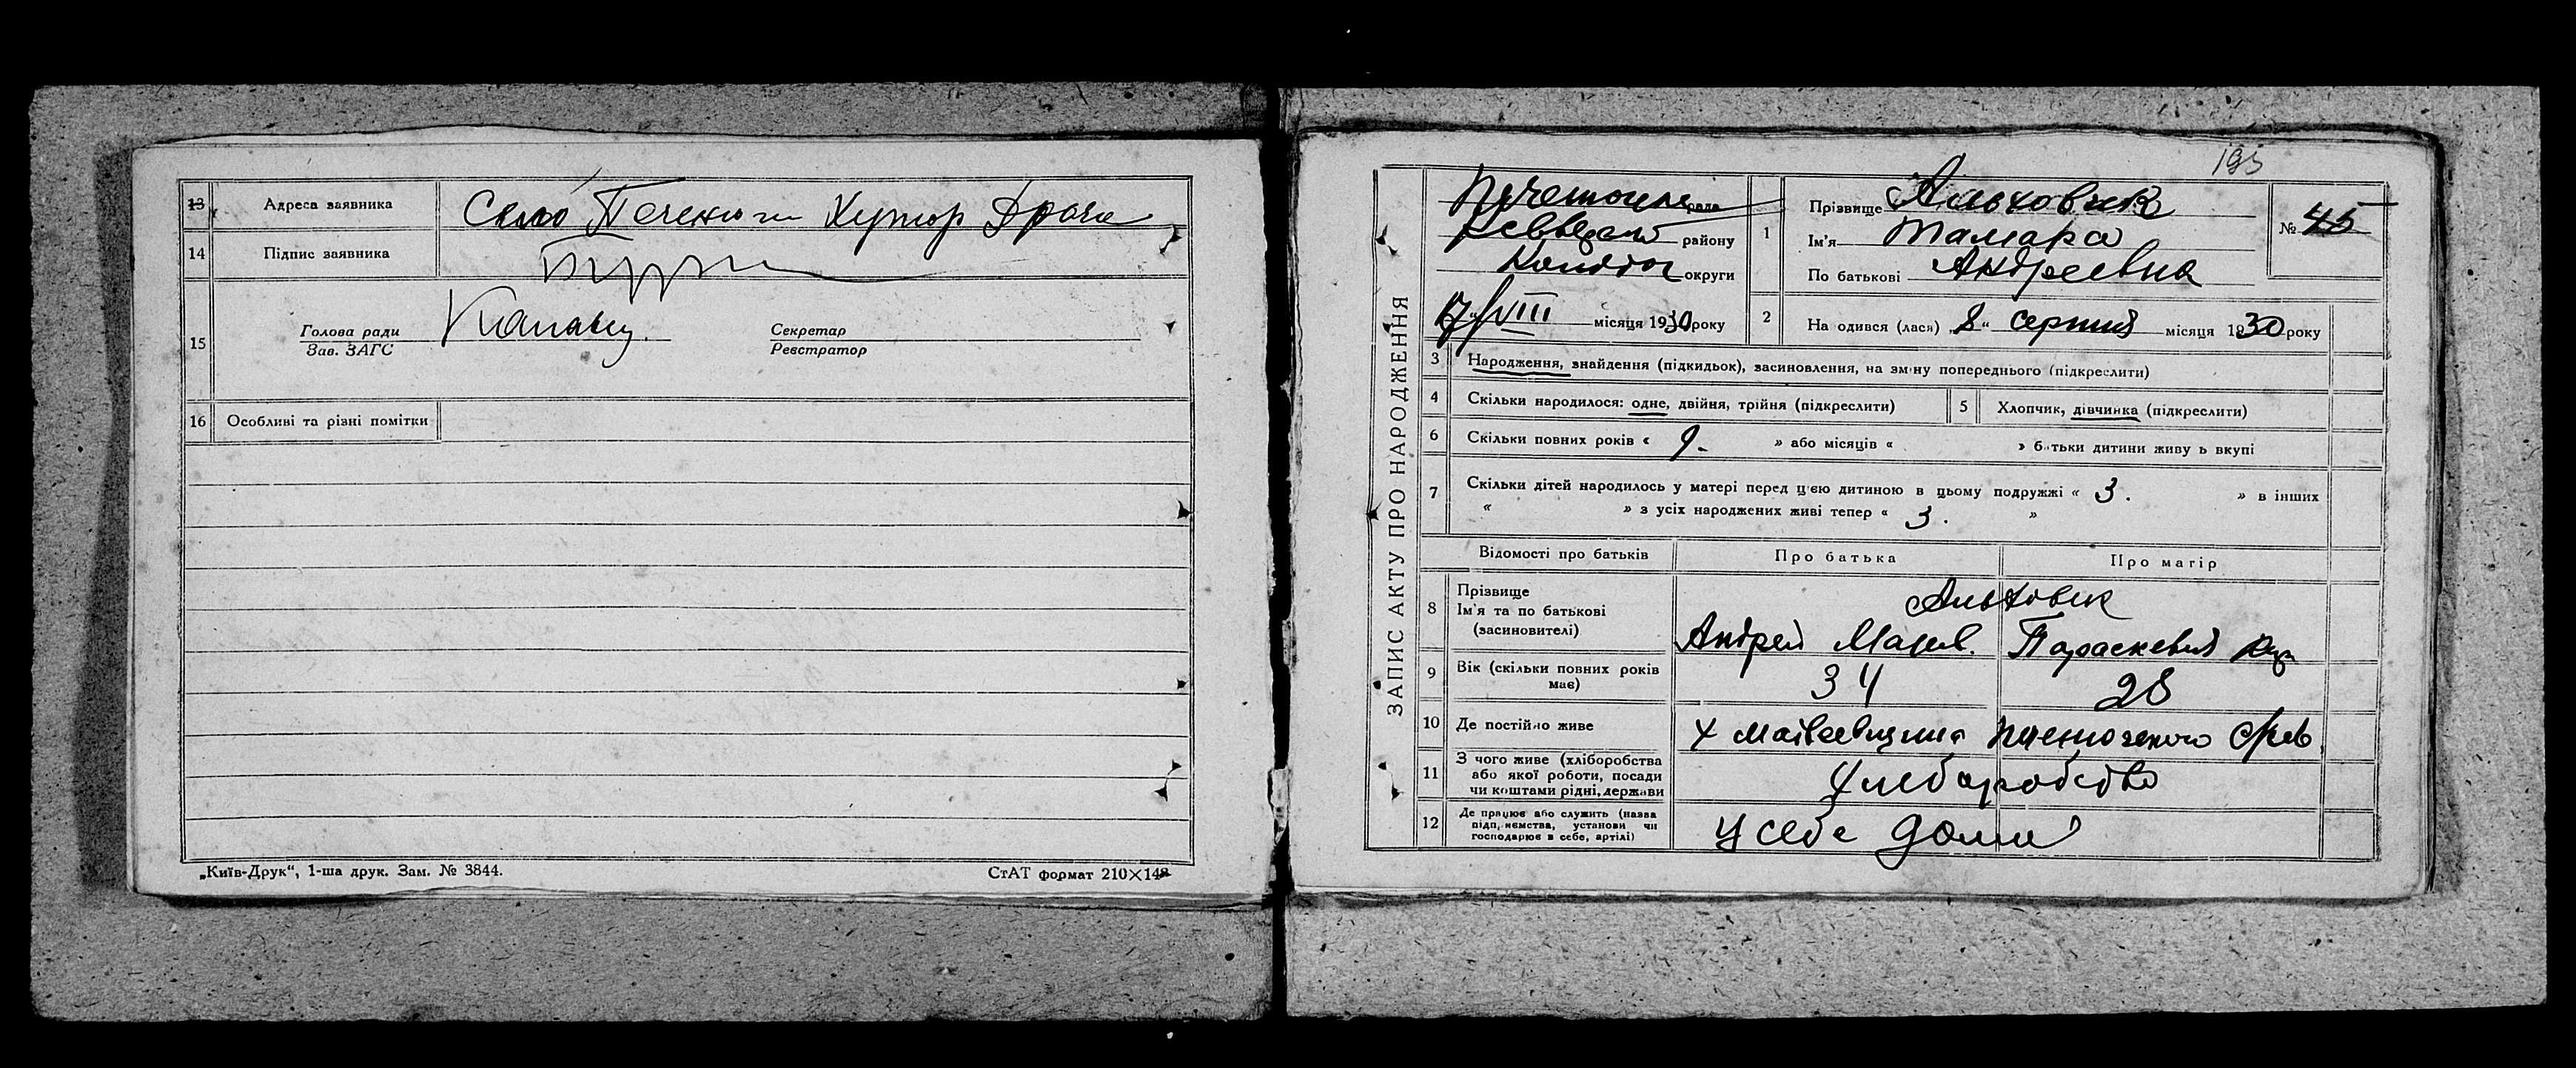 13 Адреса заявника Село Печенюги Хутор Драги
14 Підпис заявника
15 Голова ради Секретар
Зав. ЗАГС Реєстратор
16 Особливі та різні помітки
„Київ-Друк“, 1-ша друк. Зам. № 3844. СтАТ формат 210×148
193
ЗАПИС АКТУ ПРО НАРОДЖЕННЯ
рада
району
округи
17/VIII місяця 1930 року
1 Прізвище Альховик
Ім'я Тамара
По батькові Андреевна
№ 45
2 На одився (лася) „8“ серпня місяця 1930 року
3 Народження, знайдення (підкидьок), засиновлення, на зміну попереднього (підкреслити)
4 Скільки народилося: одне, двійня, трійня (підкреслити) 5 Хлопчик, дівчинка (підкреслити)
6 Скільки повних років « 9. » або місяців « » батьки дитини живу ь вкупі
7 Скільки дітей народилось у матері перед цією дитиною в цьому подружжі « 3. » в інших
« » з усіх народжених живі тепер « 3. »
Відомості про батьків Про батька Про матір
8 Прізвище Альховик
Ім'я та по батькові Андрей Параскевия
(засиновителі)
9 Вік (скільки повних років має) 34 28
10 Де постійно живе х Матвеевщина
11 З чого живе (хліборобства або якої роботи, посади чи коштами рідні, держави Хлеборобство
12 Де працює або служить (назва підприємства, установи чи господарює в себе, артілі) У себе дома